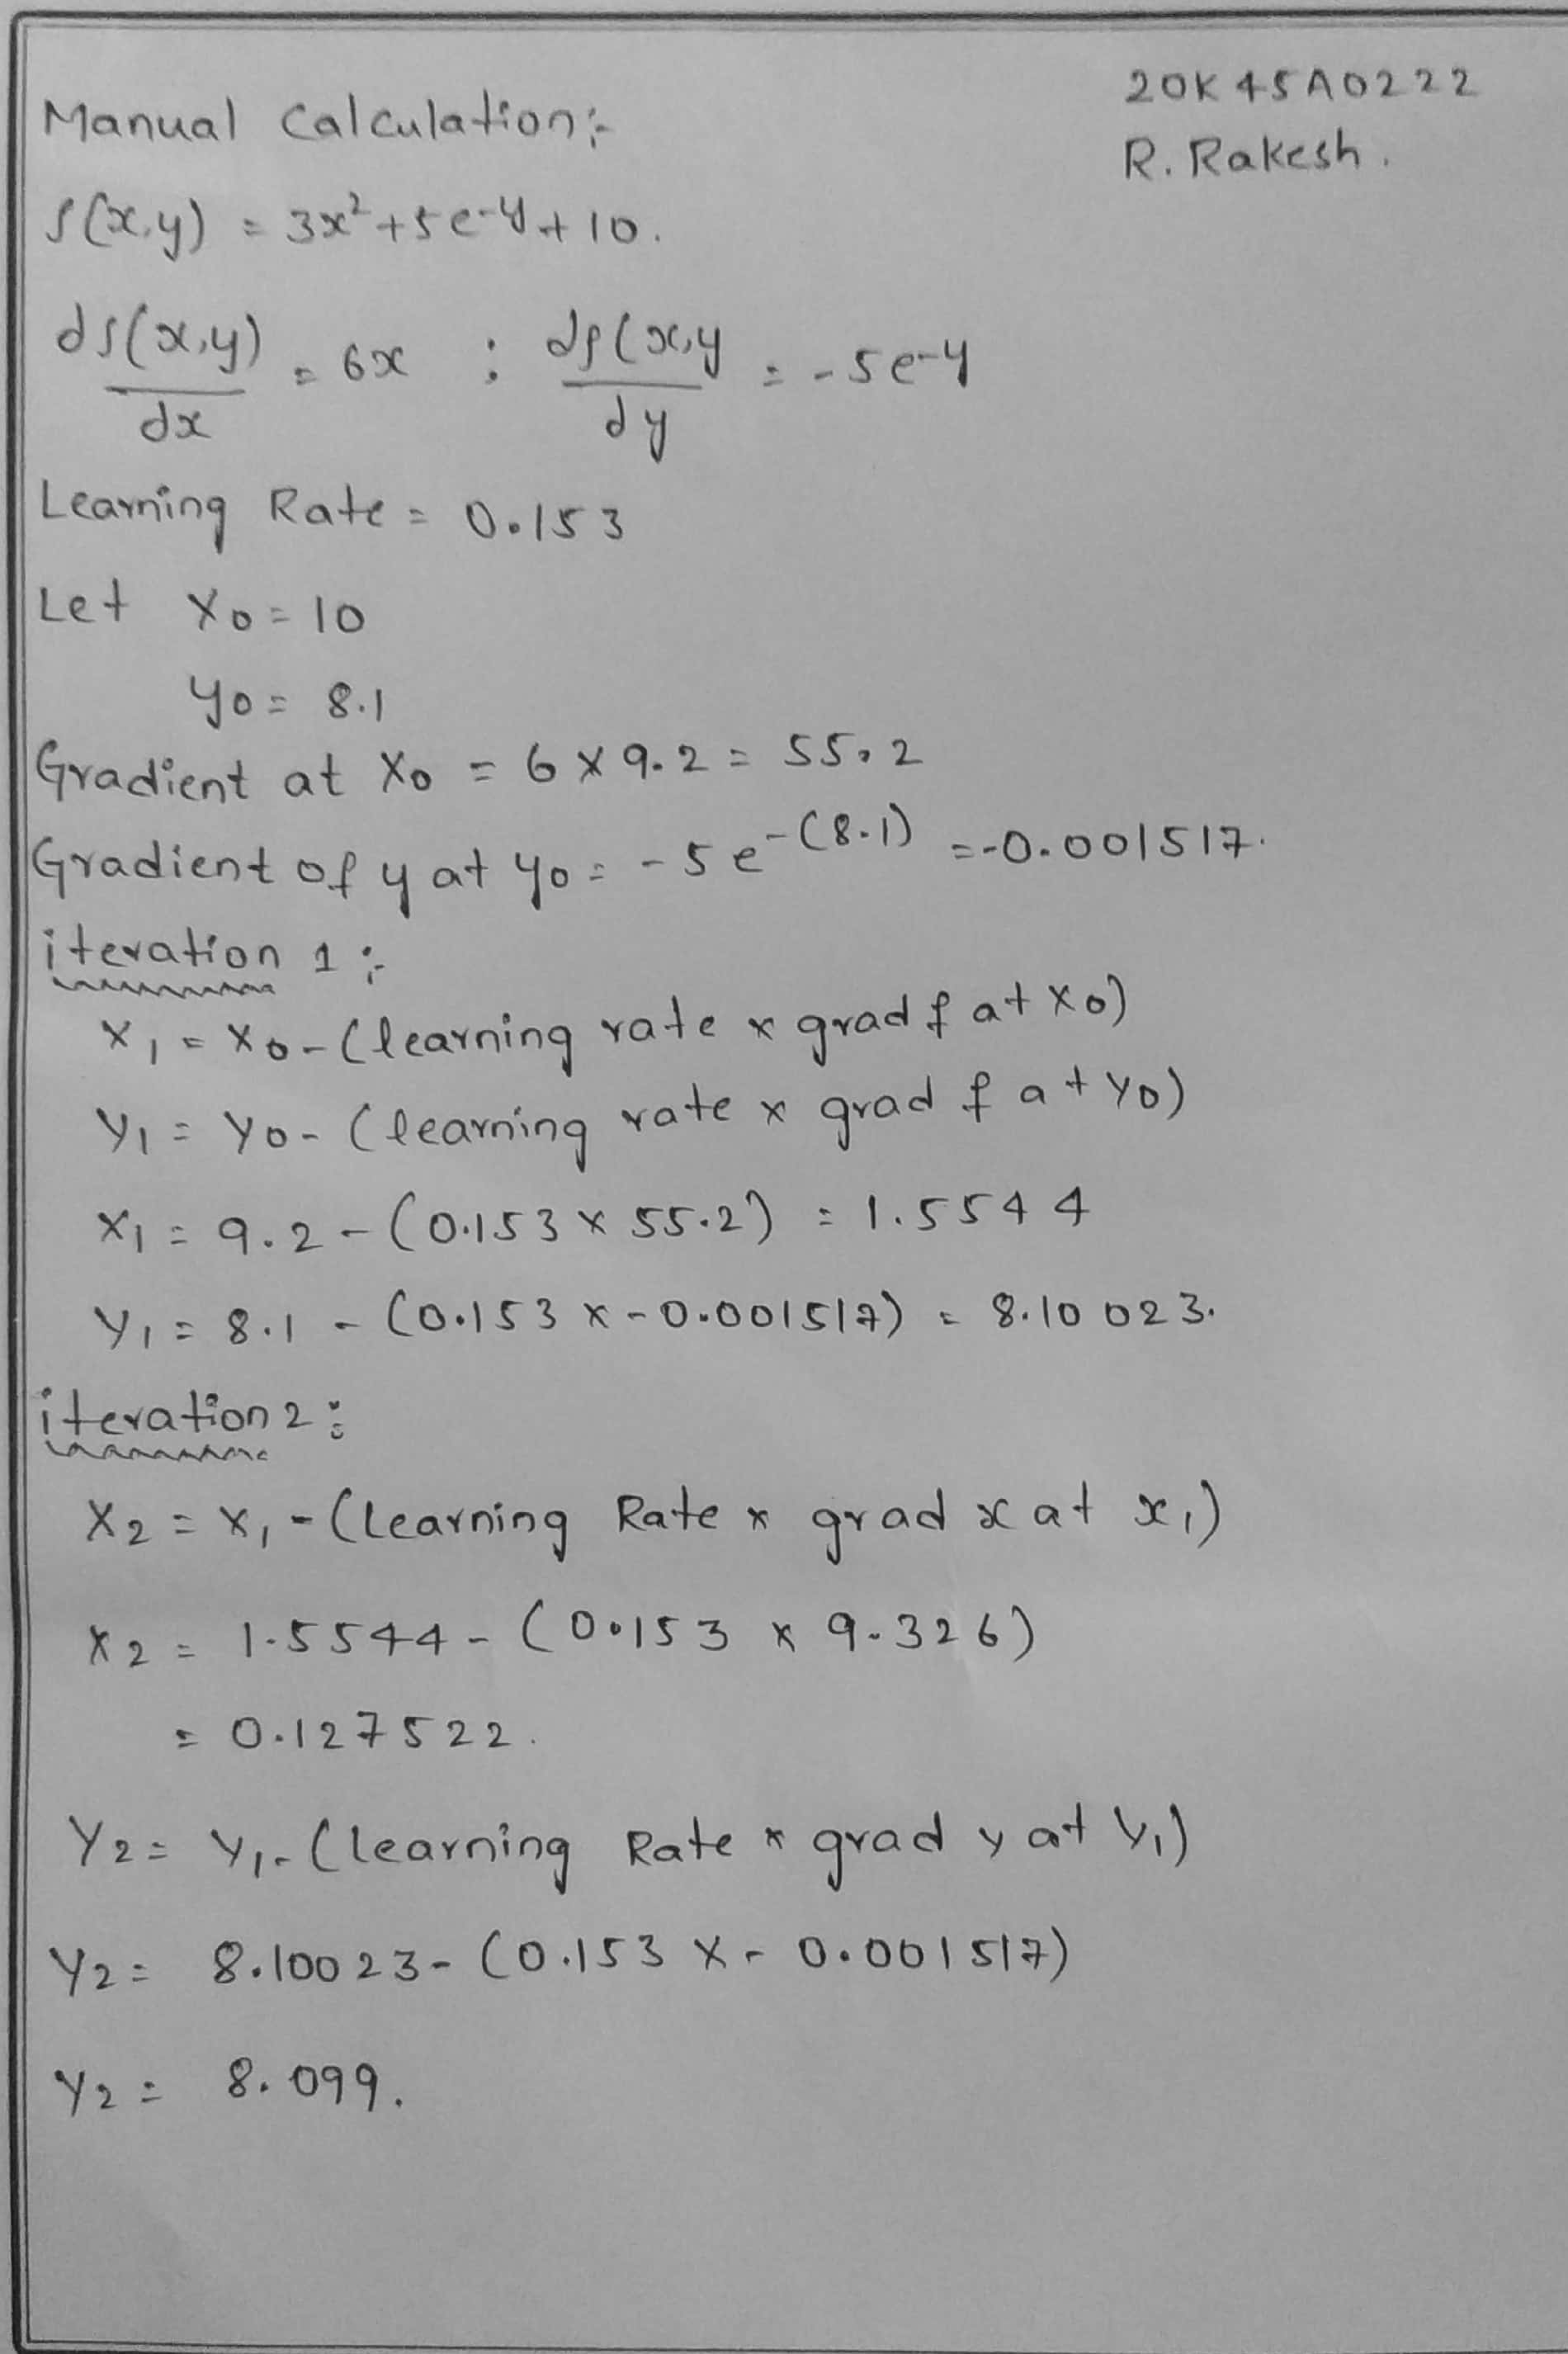 20K45A0222
Manual Calculation:-
R. Rakesh.
f(x,y) = 3x²+5e-y+10.
df(x,y)/dx = 6x ; df(x,y/dy = -5e-y
Learning Rate = 0.153
Let X0=10
y0= 8.1
Gradient at X0 = 6×9.2 = 55.2
Gradient of y at y0 = -5e-(8.1) =-0.001517.
iteration 1:-
X1 = X0-(learning rate × grad f at X0)
Y1 = Y0-(learning rate × grad f at Y0)
X1 = 9.2-(0.153×55.2) = 1.5544
Y1 = 8.1 - (0.153×-0.001517) = 8.10023.
iteration 2:
X2 = X1-(Learning Rate × grad x at x1)
X2 = 1.5544-(0.153 × 9.326)
= 0.127522.
Y2 = Y1-(learning Rate × grad y at Y1)
Y2 = 8.10023-(0.153 ×- 0.001517)
Y2 = 8.099.